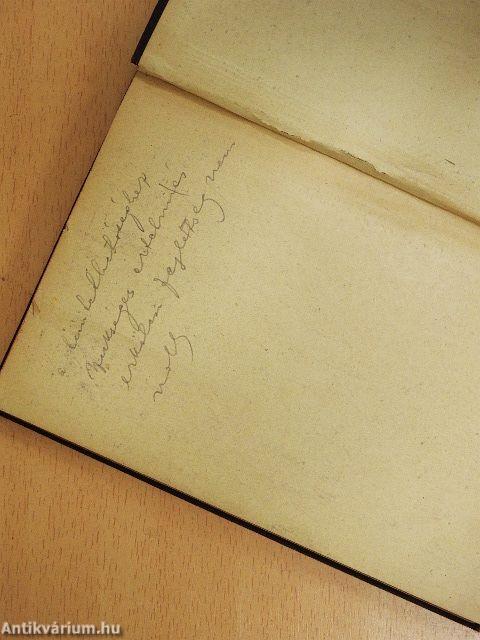 szükséges értelmi és
erkölcsi fejlettség nem
volt
Antikvárium.hu